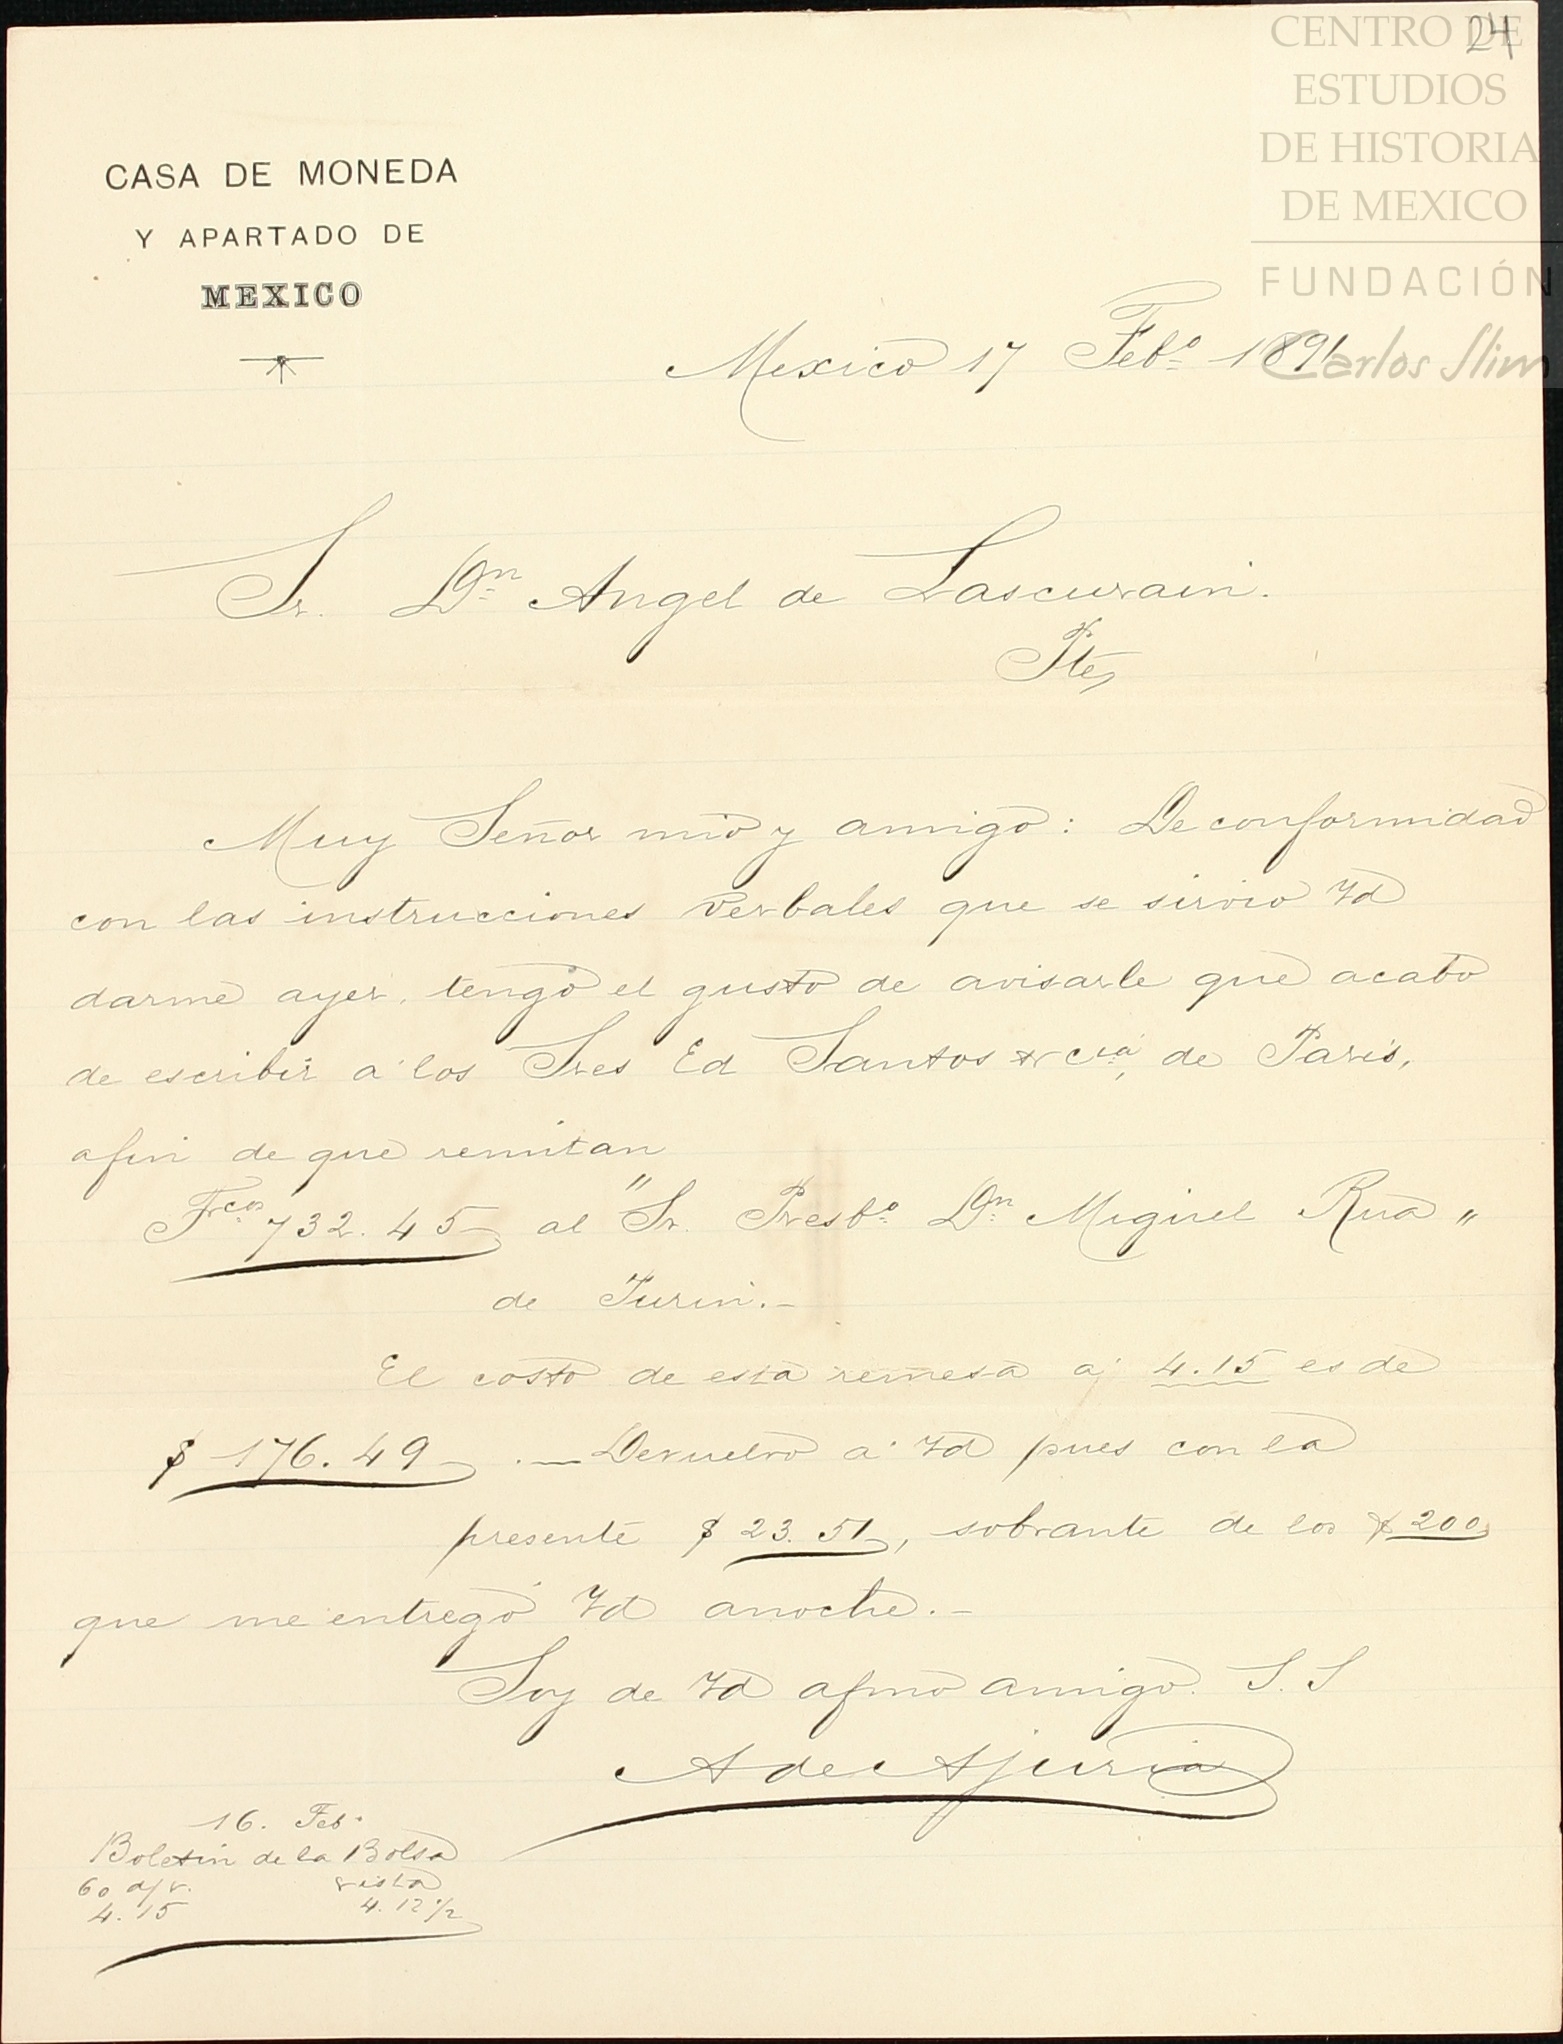 24
CENTRO DE
ESTUDIOS
DE HISTORIA
DE MEXICO
FUNDACIÓN
Carlos Slim
CASA DE MONEDA
Y APARTADO DE
MEXICO
Mexico 17 Febº 1891
Sr. Dn Angel de Lascurain.
Pte,
Muy Señor mio y amigo: De conformidad
con las instrucciones verbales que se sirvio Vd
darme ayer, tengo el gusto de avisarle que acabo
de escribir a los Sres Ed Santos & cia, de Paris,
afin de que remitan
Fcos 732.45 al "Sr. Presbº Dn Miguel Rua"
de Turin.-
El costo de esta remesa a 4.15 es de
$ 176.49 . — Devuelvo á Vd pues con la
presente $ 23.51, sobrante de los $ 200
que me entregó Vd anoche.-
Soy de Vd afmo amigo. S. S
A de Ajuria
16. Feb.
Boletin de la Bolsa
60 d/v. vista
4.15 4.12 1/2